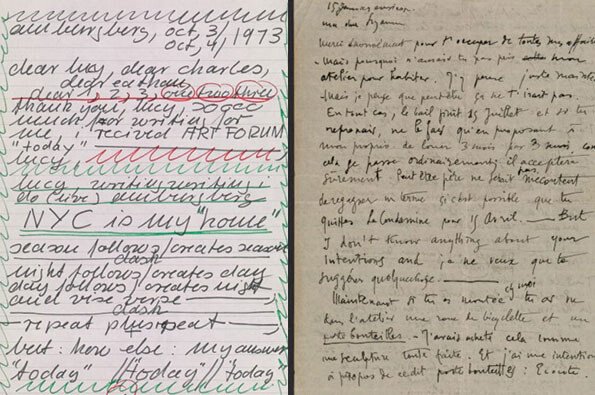 oct, 3/
oct, 4/ 1973
dear lucy, dear charles,
dear
1, 2, 3, one two three
thank you, lucy, soooo
much for writing/for
me, i recived ART FORUM
"today"
lucy,
lucy, writing, writing,
do
NYC is my "home"
season follows/creates season
dash
night follows/creates day
day follows/creates night
and vise verse
dash
repeat plusrepeat
but: how else: my answer
"today" /today"/today"
15 Janvier environ
ma chère Suzanne
merci énormément pour t'occuper de toutes mes affaires
- Mais pourquoi n'aurais tu pas pris mon
atelier pour habiter. J'y pense juste mainte
Mais je pense que peut être ça ne t'irait pas.
En tout cas, le bail finit 15 Juillet et si tu
reprenais, ne le fais qu'en proposant à
mon proprio. de louer 3 mois par 3 mois, com
cela se passe ordinairement; il acceptera
sûrement. Peut être père ne serait pas mécontent
de regagner un terme si c'est possible que tu
quittes La Condamine pour 15 Avril. — But
I don't know anything about your
intentions and je ne veux que te
suggérer quelquechose. —
Maintenant si tu es montée chez moi tu as vu
dans l'atelier une roue de bicyclette et un
porte bouteilles. — J'avais acheté cela comme
une sculpture toute faite. Et j'ai une intention
à propos de ce dit porte bouteilles : Ecoute.